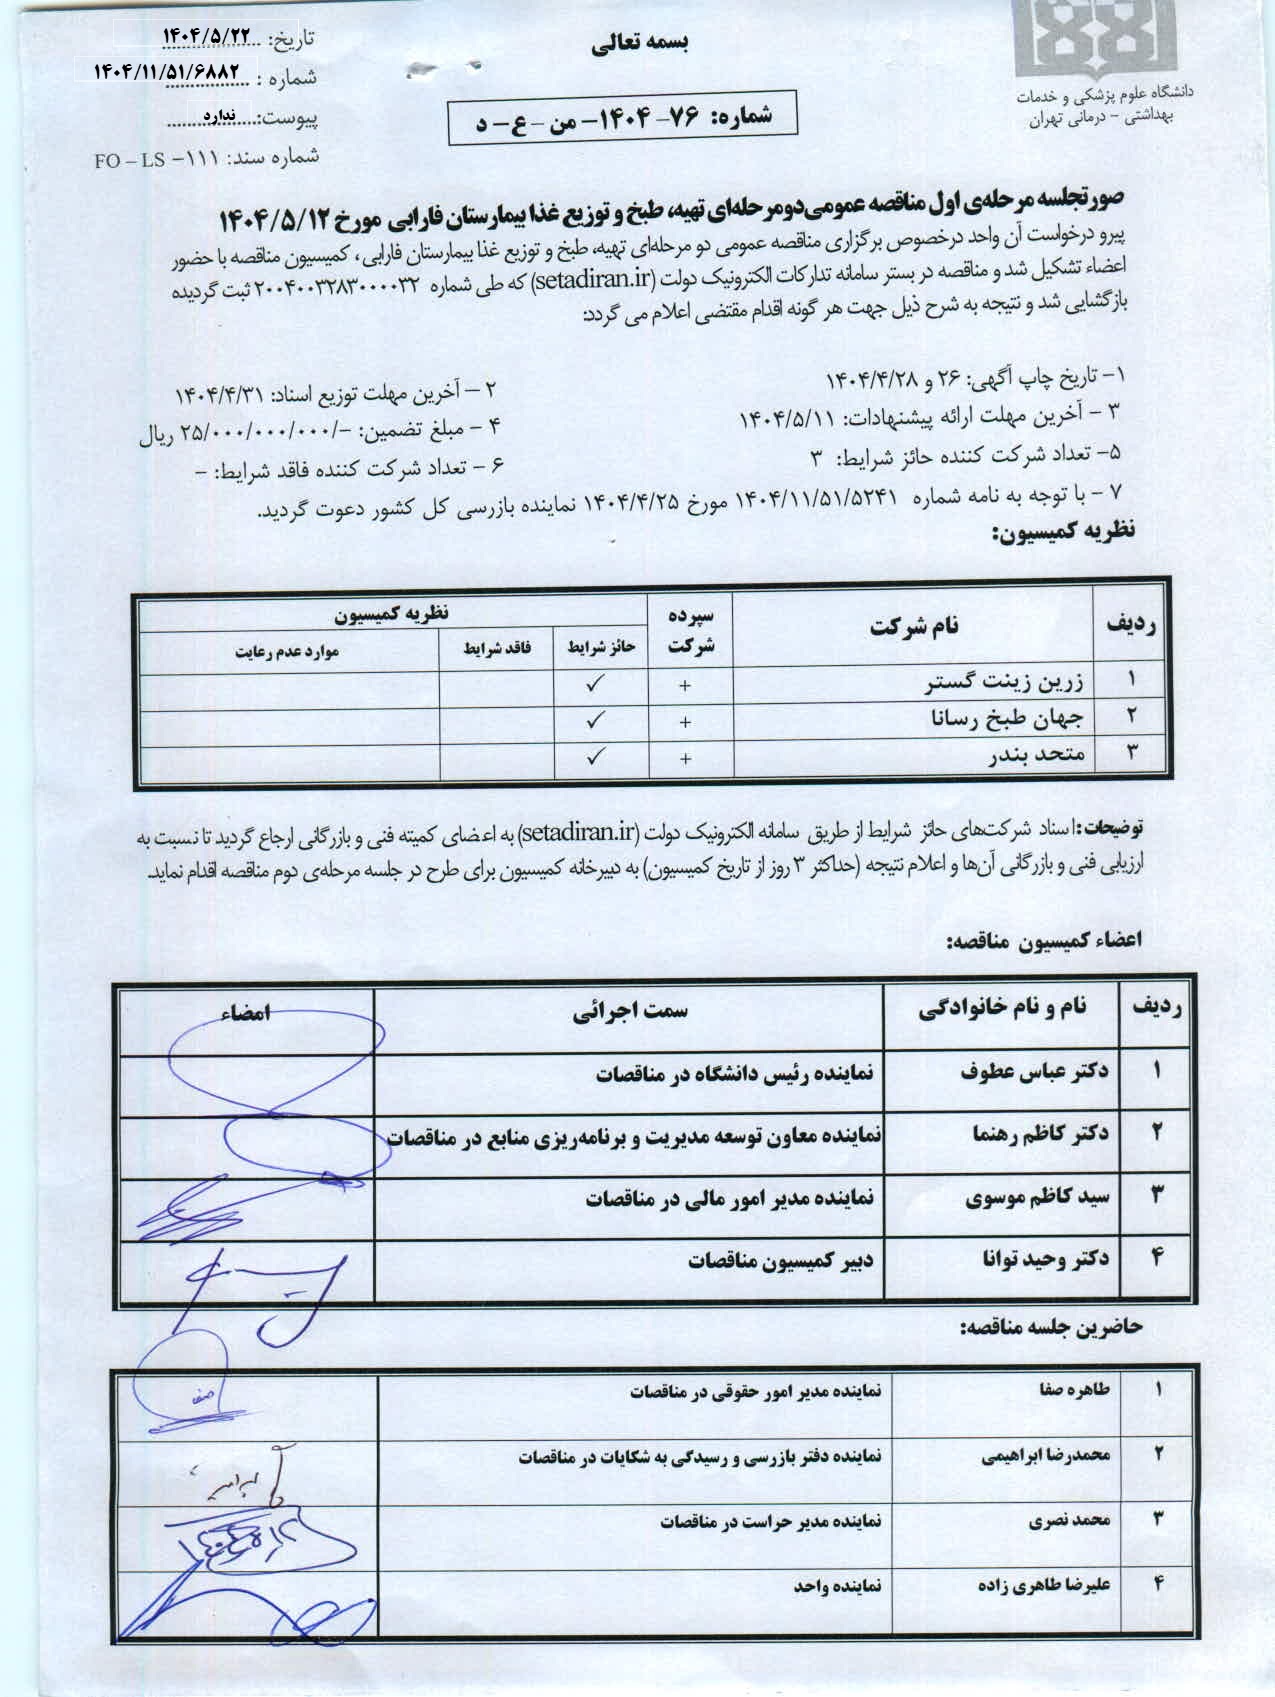 بسمه تعالی
دانشگاه علوم پزشکی و خدمات
بهداشتی - درمانی تهران
تاریخ: ۱۴۰۴/۵/۲۲
شماره : ۱۴۰۴/۱۱/۵۱/۶۸۸۲
پیوست: ندارد
شماره سند: FO – LS –۱۱۱
شماره: ۷۶- ۱۴۰۴- من - ع- د
صورتجلسه مرحله‌ی اول مناقصه عمومی دومرحله‌ای تهیه، طبخ و توزیع غذا بیمارستان فارابی مورخ ۱۴۰۴/۵/۱۲
پیرو درخواست آن واحد درخصوص برگزاری مناقصه عمومی دو مرحله‌ای تهیه، طبخ و توزیع غذا بیمارستان فارابی، کمیسیون مناقصه با حضور
اعضاء تشکیل شد و مناقصه در بستر سامانه تدارکات الکترونیک دولت (setadiran.ir) که طی شماره ۲۰۰۴۰۰۳۲۸۳۰۰۰۰۳۲ ثبت گردیده
بازگشایی شد و نتیجه به شرح ذیل جهت هر گونه اقدام مقتضی اعلام می گردد:
۱- تاریخ چاپ آگهی: ۲۶ و ۱۴۰۴/۴/۲۸
۲ – آخرین مهلت توزیع اسناد: ۱۴۰۴/۴/۳۱
۳ – آخرین مهلت ارائه پیشنهادات: ۱۴۰۴/۵/۱۱
۴ – مبلغ تضمین: -/۲۵/۰۰۰/۰۰۰/۰۰۰ ریال
۵- تعداد شرکت کننده حائز شرایط: ۳
۶ – تعداد شرکت کننده فاقد شرایط: -
۷ – با توجه به نامه شماره ۱۴۰۴/۱۱/۵۱/۵۲۴۱ مورخ ۱۴۰۴/۴/۲۵ نماینده بازرسی کل کشور دعوت گردید.
نظریه کمیسیون:
ردیف نام شرکت سپرده شرکت نظریه کمیسیون
حائز شرایط فاقد شرایط موارد عدم رعایت
۱ زرین زینت گستر + ✓
۲ جهان طبخ رسانا + ✓
۳ متحد بندر + ✓
توضیحات: اسناد شرکت‌های حائز شرایط از طریق سامانه الکترونیک دولت (setadiran.ir) به اعضای کمیته فنی و بازرگانی ارجاع گردید تا نسبت به
ارزیابی فنی و بازرگانی آن‌ها و اعلام نتیجه (حداکثر ۳ روز از تاریخ کمیسیون) به دبیرخانه کمیسیون برای طرح در جلسه مرحله‌ی دوم مناقصه اقدام نماید.
اعضاء کمیسیون مناقصه:
ردیف نام و نام خانوادگی سمت اجرائی امضاء
۱ دکتر عباس عطوف نماینده رئیس دانشگاه در مناقصات
۲ دکتر کاظم رهنما نماینده معاون توسعه مدیریت و برنامه‌ریزی منابع در مناقصات
۳ سید کاظم موسوی نماینده مدیر امور مالی در مناقصات
۴ دکتر وحید توانا دبیر کمیسیون مناقصات
حاضرین جلسه مناقصه:
۱ طاهره صفا نماینده مدیر امور حقوقی در مناقصات
۲ محمدرضا ابراهیمی نماینده دفتر بازرسی و رسیدگی به شکایات در مناقصات
۳ محمد نصری نماینده مدیر حراست در مناقصات
۴ علیرضا طاهری زاده نماینده واحد